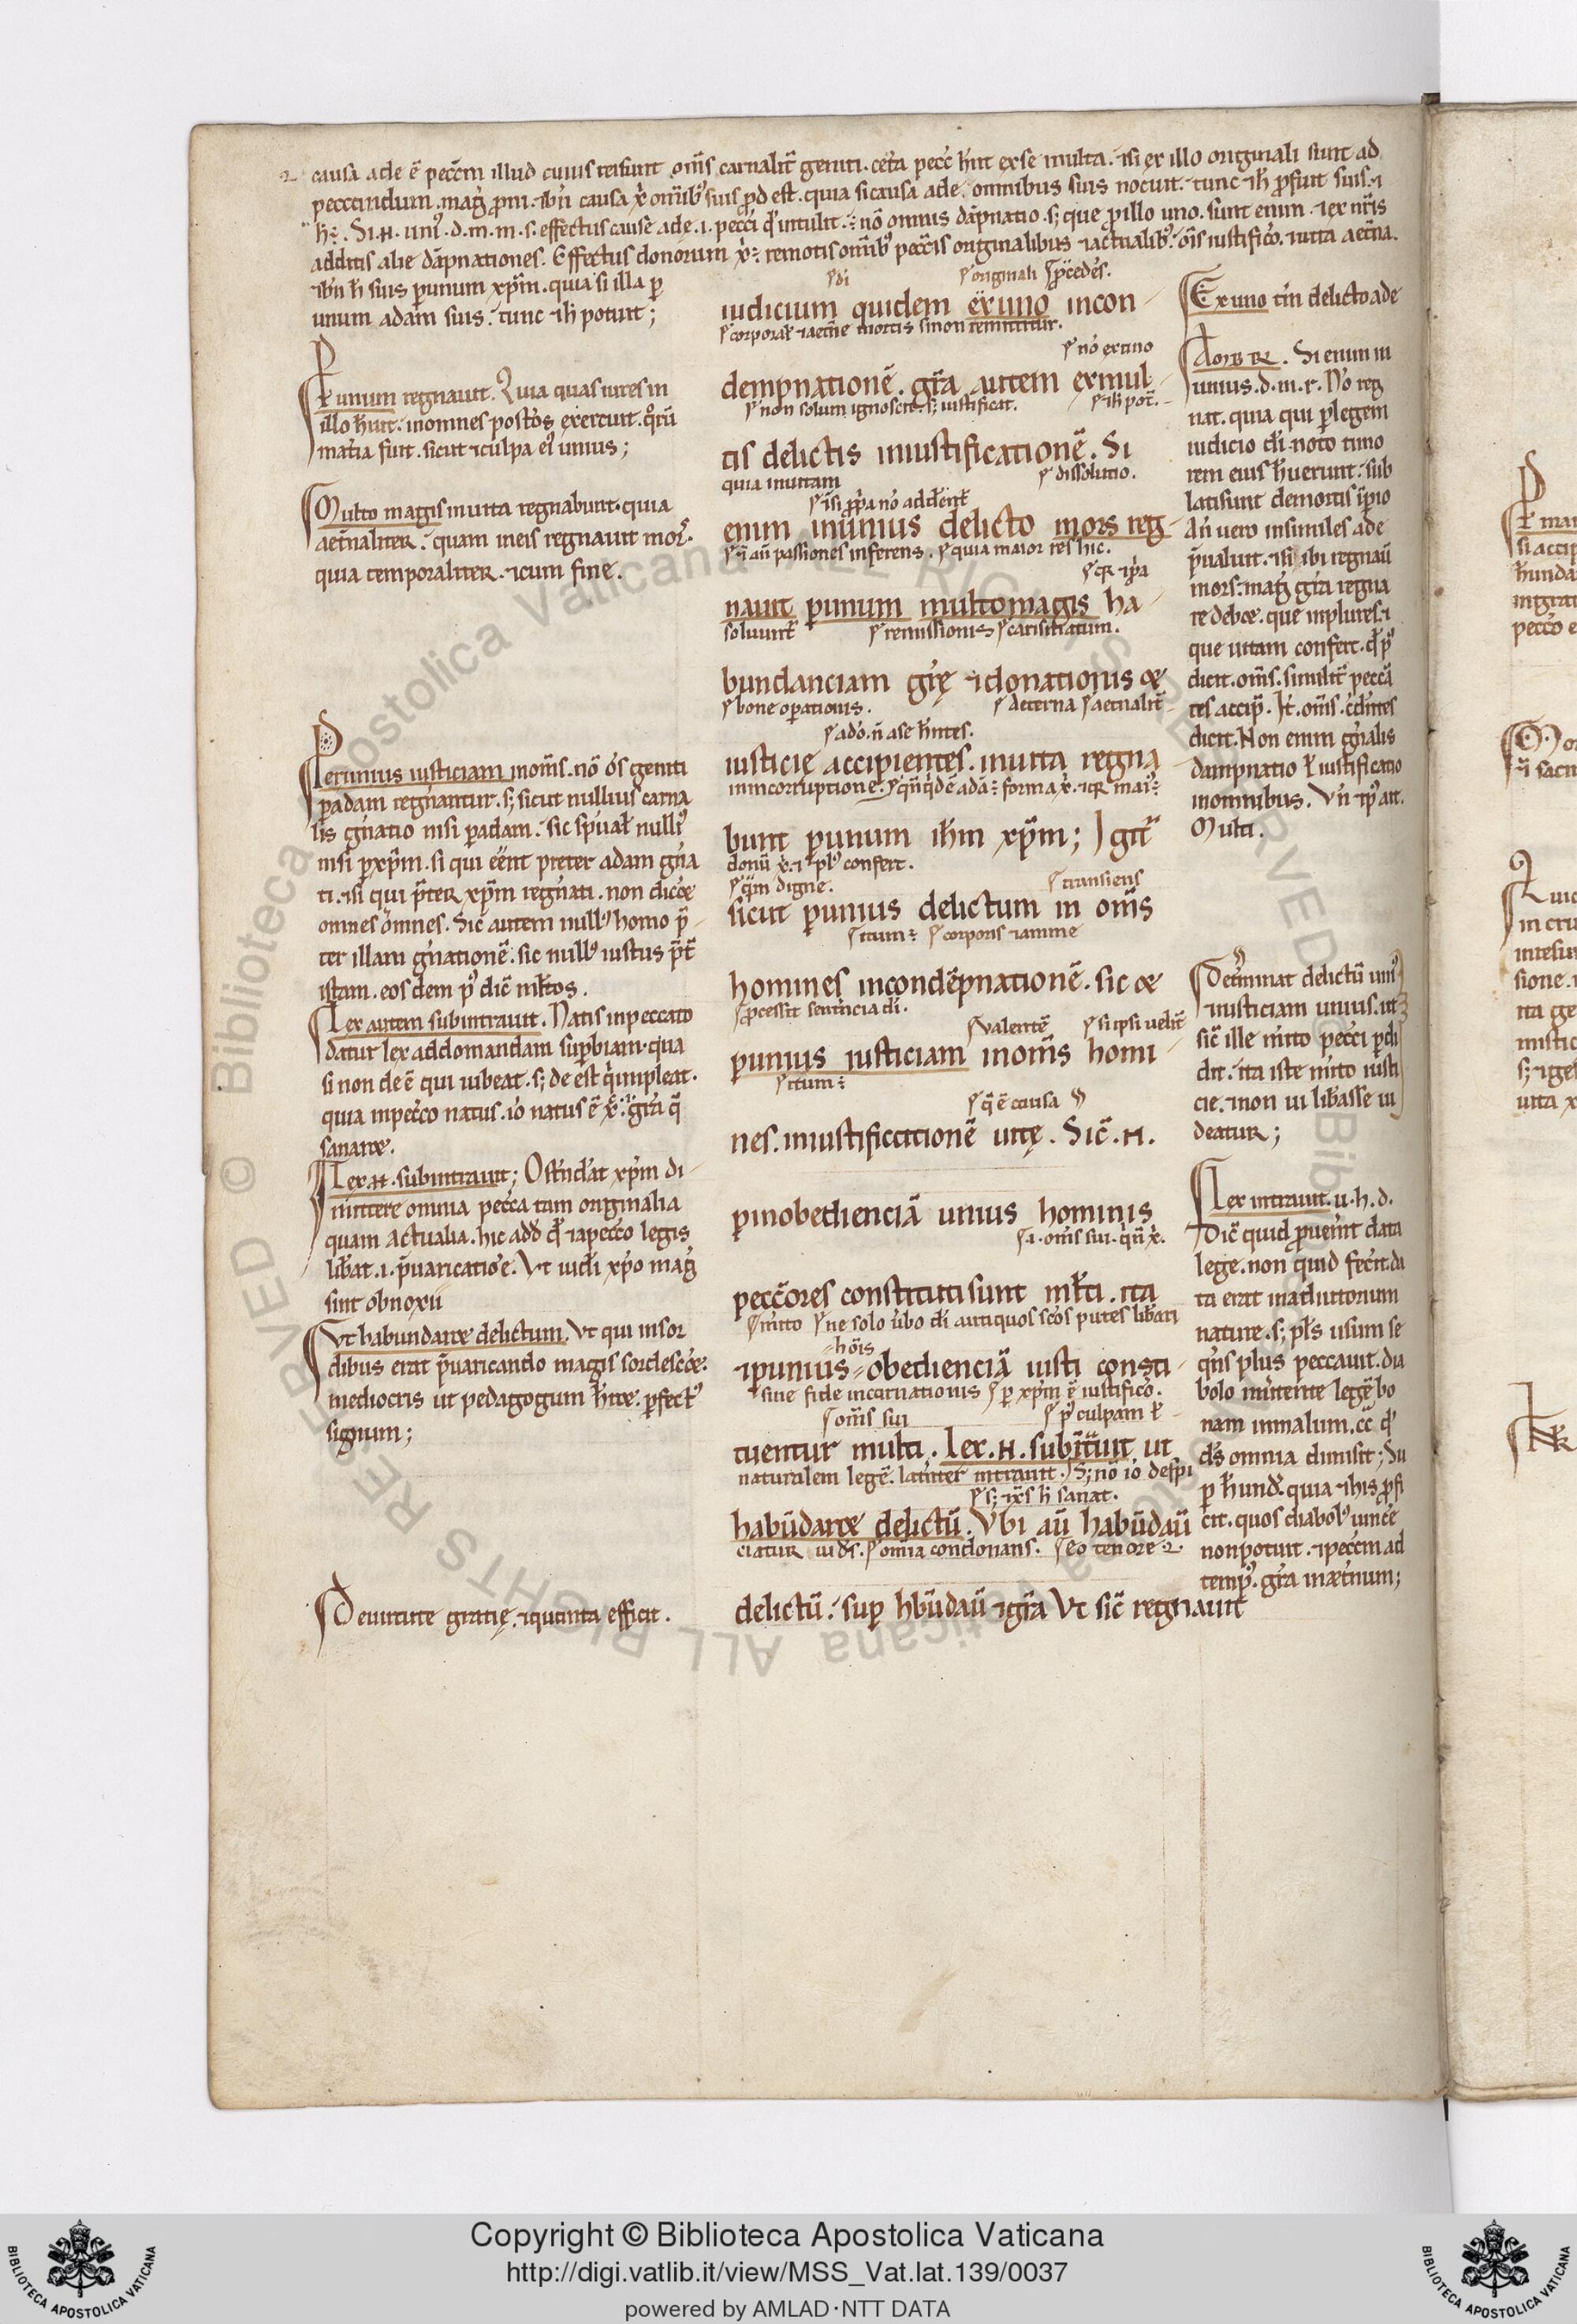 causa ade ē pecc̄m illud cuius rei sunt om̄s carnalit̄ geniti. cet̄a pecc̄ hn̄t ex se multa. ⁊ si ex illo originali sunt ad
peccandum. mag̣ p̄m. ⁊ bn̄ causa x̄ om̄ib; suis ꝓdest. quia si causa ade omnibus suis nocuit. tunc ⁊ ih̄ ꝓfuit suis. ⁊
additis alie dāpnationes. Effectus donorum x̄. remotis om̄ib; pecc̄is originalibus ⁊ actualib;. om̄s iustificō. ⁊ uita aet̄na.
⁊ bn̄ h̄ suis ꝑ unum xp̄m. quia si illa ꝑ
unum adam suis. tunc ⁊ ih̄ potuit;
Per unum regnauit. Quia quas uires in
illo h̄uit. in omnes post̄os exercuit. q̊rū
mat̄ia fuit. sicut ⁊ culpa ei; unius;
Multo magis in uita regnabunt. quia
aet̄naliter. quam in eis regnauit mors.
quia temporaliter. ⁊ cum fine.
Per unius iusticiam in om̄s. nō om̄s geniti
ꝑ adam regn̄antur. s; sicut nullius carna
lis gn̄atio nisi ꝑ adam. sic sp̄ual̄ null;
nisi ꝑ xp̄m. si qui eēnt preter adam gn̄a
ti. ⁊ si qui p̄ter xp̄m regn̄ati. non dicēt
omnes omnes. Sic autem null; homo p̄
ter illam gn̄ationē. sic null; iustus p̄t̄
istam. eosdem p; dic̄ ml̄tos.
Lex autem subintrauit. Natis in peccato
datur lex ad domandam suꝑbiam. qua
si non deē qui iubeat. s; deest q̇ impleat.
quia in pecc̄o natus. iō natus ē x̄. gr̄a q̄
sanaret.
Lex .H. subintrauit; Ostn̄dat xp̄m di
mittere omnia pecc̄a tam originalia
quam actualia. hic add̄ qd̄ ⁊ a pecc̄o legis
lib̄at .i. p̄uaricatiōe. Vt iud̄i xp̄o mag̣
sint obnoxii
Vt habundaret delictum. Vt qui in sor
dibus erat p̄uaricando magis sordescēt.
mediocris ut pedagogum h̄ret. ꝑfect;
signum;
De uirtute gratię. ⁊ quanta efficit.
ꝭ di ꝭ originali ꝭ p̄cedēs.
iudicium quidem ex uno in con
ꝭ corporal̄ ⁊ aet̄ne mortis si non remittitur.
ꝭ nō ex uno
dempnationē. gr̄a autem ex mul
ꝭ non solum ignoscit. s; iustificat. ꝭ ih̄ pot̄.
tis delictis in iustificationē. Si
quia in uitam ꝭ dissolutio.
enim in unius delicto mors reg
ꝭ q̄ aū passiones inferens. ꝭ quia maior res hic.
nauit ꝑ unum multo magis ha
soluunt̄ ꝭ remissionis ꝭ carismatum.
bundanciam gr̄ę ⁊ donationis ⁊
ꝭ bone oꝑationis. ꝭ aeterna ꝭ aet̄nalit̄
ꝭ a dō. n̄ a se h̄ntes.
iusticię accipientes. in uita regna
bunt ꝑ unum ih̄m xp̄m; Igit̄
donū x̄. ⁊ pl; confert.
ꝭ q̄m digne. ꝭ transiens
sicut ꝑ unius delictum in om̄s
ꝭ itum ꝭ corporis ⁊ anime
homines in condēpnationē. sic ⁊
ꝭ ꝓcessit sentencia di.
ꝭ ualentē ꝭ si ipsi uelit̄
ꝑ unius iusticiam in om̄s homi
ꝭ itum
ꝭ q̄ ē causa
nes. in iustificationē uitę. Sic̄ .H.
ꝑ inobedienciā unius hominis
ꝭ .i. om̄s sui. qn̄ x̄.
pecc̄ores constituti sunt ml̄ti. ita
ꝭ m̄ito ꝭ ne solo ūbo di antiquos sc̄os putes lib̄ari
hōis
⁊ ꝑ unius obedienciā iusti consti
siue fide incarnationis ꝭ ꝑ xp̄m ē iustificō.
ꝭ om̄s sui ꝭ p; culpam
tuentur multi. Lex .H. subīt̄uit ut
naturalem legē. latenter intrauit. ꝭ S; nō iō despi
ꝭ s; ⁊ x̄s h̄ sanat.
habūdaret delictū. Vbi aū habūdaū
ciatur iuds. ꝭ omīa condonans. ꝭ eo tenore
delictū. suꝑ hbūdaū ⁊ gr̄a Vt sic̄ regnauit
Ex uno tn̄ delicto ade
Si enim in
unius .d.m.r. No reg
nat. quia qui ꝑ legem
iudicio di noto timo
rem eius h̄uerunt. sub
lati sunt de mortis īꝑio
An̄ uero in similes ade
p̄ualuit. ⁊ si ibi regnaū
mors. mag̣ gr̄a regna
re debet. que in plures. ⁊
que uitam confert. qd̄ p;
dicit. om̄s. similit̄ peccā
tes accip̄. It̄. om̄s. c̄dentes
dicit. Non enim gn̄alis
dampnatio ē iustificatio
in omnibus. Vn̄ ⁊ p; ait.
Multi.
Det̄minat delictū uni;
⁊ iusticiam unius. ut
sic̄ ille m̄ito pecc̄i ꝑdi
dit. ita iste m̄ito iusti
cie. ⁊ non ui lib̄asse ui
deatur;
Lex intrauit. u. h. d.
Dic̄ quid ꝓuen̄it data
lege. non quid fec̄it. da
ta erat in adiutorium
nature. s; pl̄s usum se
qn̄s plus peccauit. dia
bolo m̄itente legē bo
nam in malum. ēt qd̄
ds omnia dimisit; Su
ꝑ h̄und̄. quia ⁊ his ꝓfi
cit. quos diabol; uincēre
non potuit. ⁊ pecc̄m ad
temp;. gr̄a in aet̄num;
Copyright © Biblioteca Apostolica Vaticana
http://digi.vatlib.it/view/MSS_Vat.lat.139/0037
powered by AMLAD·NTT DATA
BIBLIOTECA APOSTOLICA VATICANA
BIBLIOTECA APOSTOLICA VATICANA